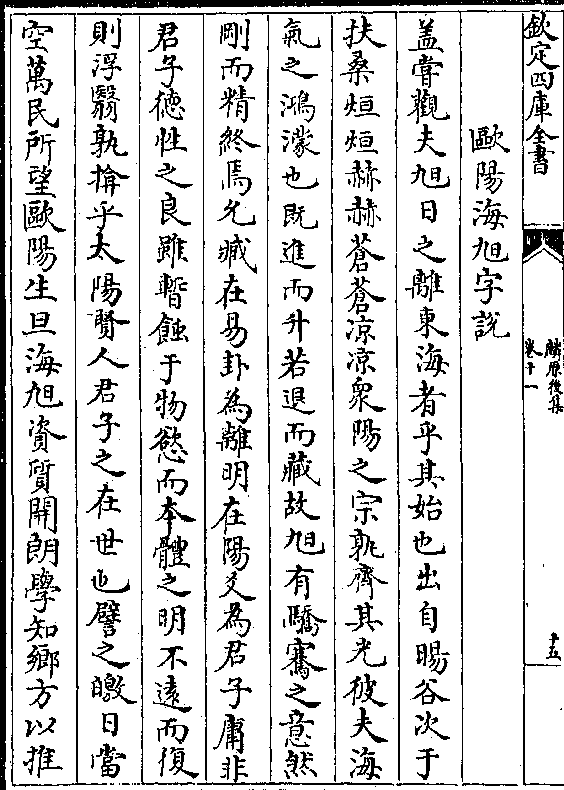 欽定四庫全書
麟原後集
卷十一
十五
歐陽海旭字說
盖嘗觀夫旭日之離東海者乎其始也出自暘谷次于
扶桑烜烜赫赫蒼蒼凉凉衆陽之宗孰齊其光彼夫海
氣之鴻濛也既進而升若退而藏故旭有驕騫之意然
剛而精終焉允臧在易卦為離明在陽爻為君子庸非
君子德性之良雖暫蝕于物慾而本體之明不遠而復
則浮翳孰揜乎太陽賢人君子之在世也譬之皦日當
空萬民所望歐陽生旦海旭資質開朗學知鄉方以推